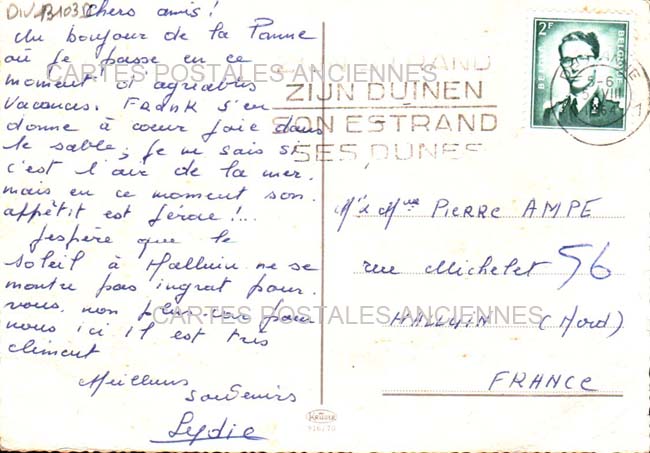 DIV.B1038
Chers amis!
Un bonjour de la Panne
où je passe en ce
moment d'agréables
vacances. FRANK s'en
donne à coeur joie dans
le sable, je ne sais si
c'est l'air de la mer,
mais en ce moment son
appétit est féroce!...
J'espère que le
soleil à Halluin ne se
montre pas ingrat pour
vous, non plus, car pour
nous ici il est très
clément
Meilleurs
souvenirs
Lydie
CARTES POSTALES ANCIENNES
STRAND
ZIJN DUINEN
SON ESTRAND
SES DUNES
2F
BELGIE
BELGIQUE
PANNE
5-6
VIII
Mr & Mme PIERRE AMPE
rue Michelet 56
HALLUIN (Nord)
FRANCE
CARTES POSTALES ANCIENNES
KRÜGER
916/70